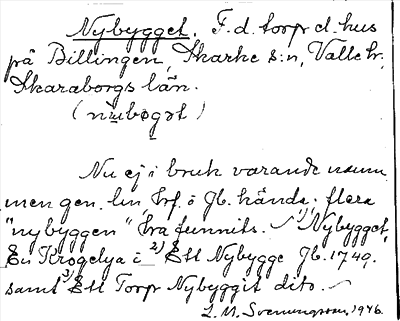 Nybygget. F. d. torp d. hus
på Billingen, Skarke s:n, Valle hd,
Skaraborgs län.
(nubøgət)
Nu ej i bruk varande namn
men gen. lin i Jb. hända. flera
"nybyggen" ha funnits. 1) Nybygget,
En Krogelya i 2) Ett Nybygge Jb. 1749.
samt 3) Ett Torp Nybyggit dito.
1946.